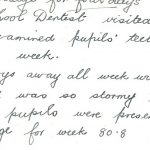 for four days
School Dentist visited
examined pupils' teeth
week.
away all week w
was so stormy
pupils were presen
for week 80.8